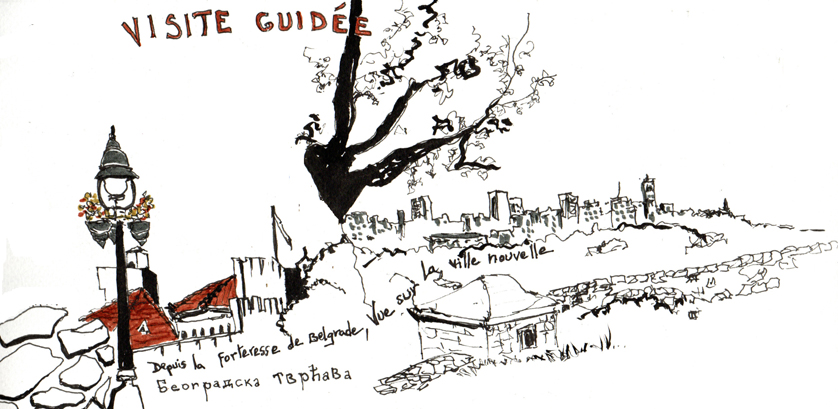 VISITE GUIDÉE
Depuis la forteresse de Belgrade, Vue sur la ville nouvelle
Београдска тврђава